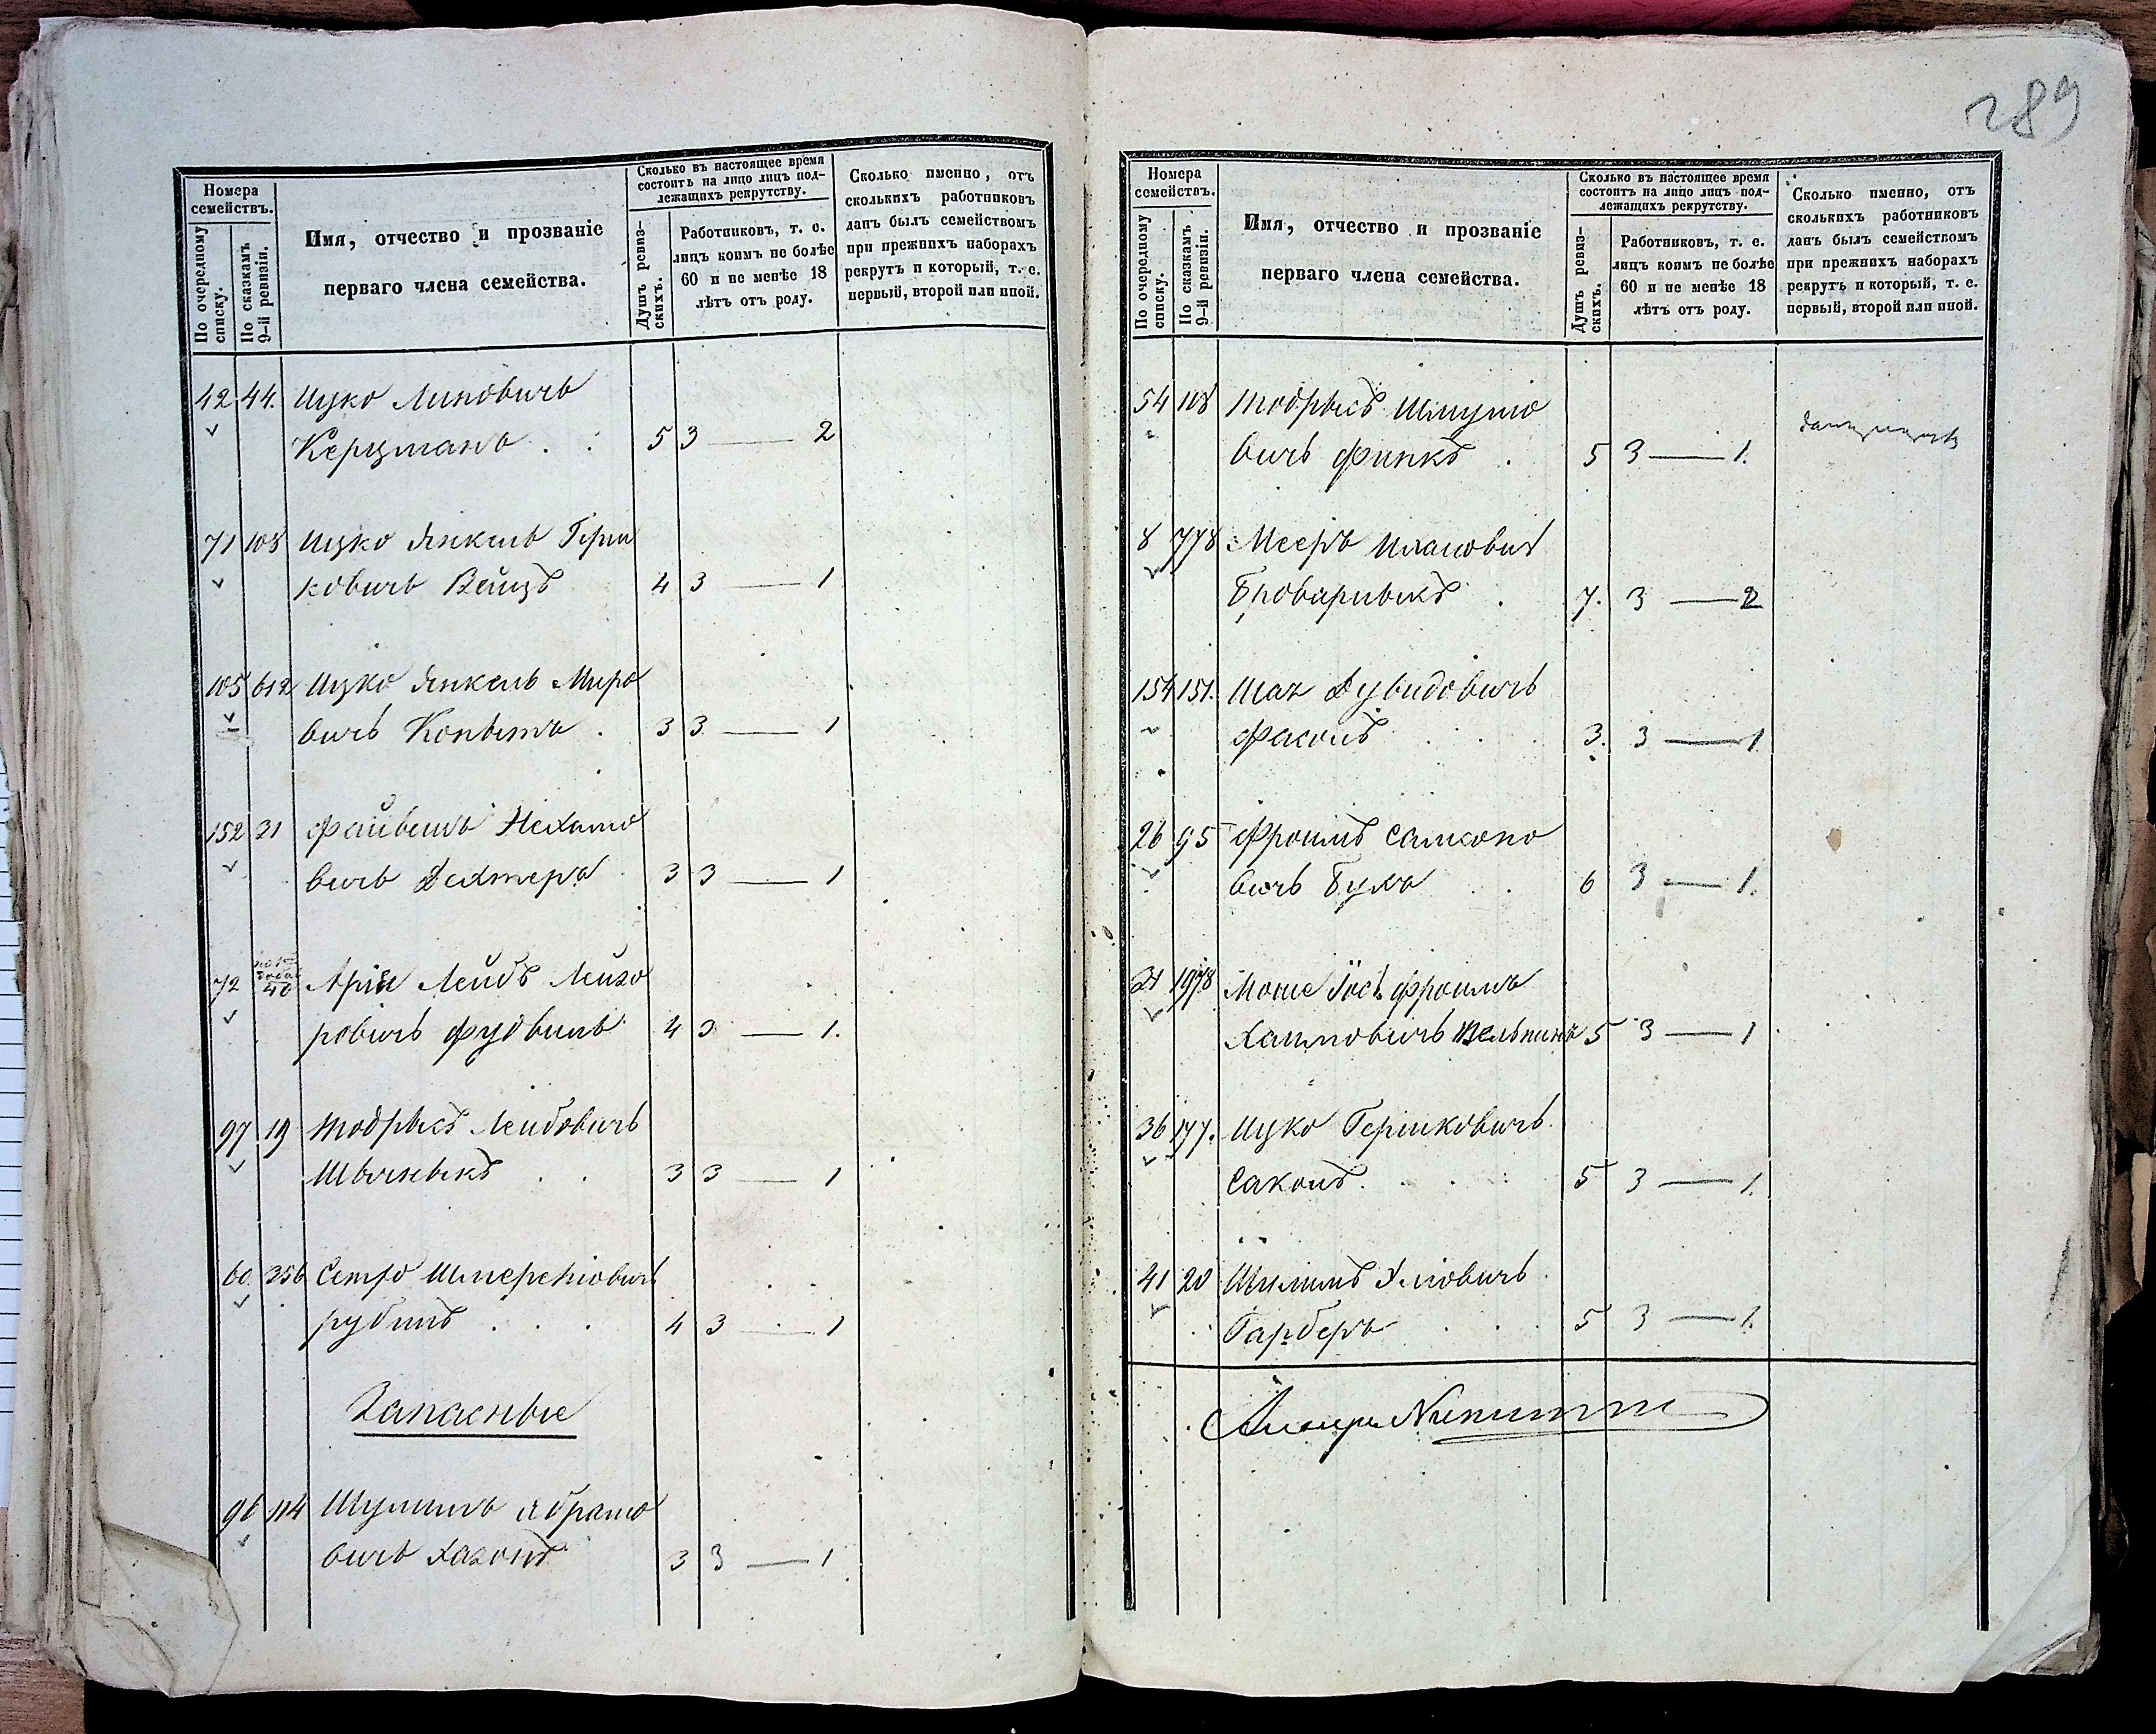 289
Номера семействъ.
По очередному списку.
По сказкамъ 9-й ревизіи.
Имя, отчество и прозваніе
перваго члена семейства.
Сколько въ настоящее время
состоитъ на лицо лицъ под-
лежащихъ рекрутству.
Душъ ревиз-
скихъ.
Работниковъ, т. е.
лицъ коимъ не болѣе
60 и не менѣе 18
лѣтъ отъ роду.
Сколько именно, отъ
сколькихъ работниковъ
данъ былъ семействомъ
при прежнихъ наборахъ
рекрутъ и который, т. е.
первый, второй или иной.
42 44. Ицко Липовичъ
Керцманъ 5 3 — 2
71 108 Ицко Янкель Герш
ковичъ Вейцъ 4 3 — 1
105 612 Ицко Янкель Меро
вичъ Копытъ 3 3 — 1
152 21 Файвишъ Нехамо
вичъ Дехтеръ 3 3 — 1
72 40 Арій Лейбъ Лейзо
ровичъ 4 3 — 1.
97 19 Тодрысъ Лейбовичъ
3 3 — 1
60. 256
Рубинъ 4 3 — 1
Запасные
96 114 Шулимъ Абрамо
вичъ Хазонъ 3 3 — 1
Номера
семействъ.
По очередному списку.
По сказкамъ 9-й ревизіи.
Имя, отчество и прозваніе
перваго члена семейства.
Сколько въ настоящее время
состоитъ на лицо лицъ под-
лежащихъ рекрутству.
Душъ ревиз-
скихъ.
Работниковъ, т. е.
лицъ коимъ не болѣе
60 и не менѣе 18
лѣтъ отъ роду.
Сколько именно, отъ
сколькихъ работниковъ
данъ былъ семействомъ
при прежнихъ наборахъ
рекрутъ и который, т. е.
первый, второй или иной.
54 108 Тодрысъ Шмуло
вичъ Финкъ 5 3 — 1.
8 778 Мееръ
Броварныкъ 7. 3 — 2
154 151. Шая Дувидовичъ
Фасонъ 3. 3 — 1
26 95 Фроимъ Самсоно
вичъ Буха 6 3 — 1.
21 1978 Моше Іосъ Фроимъ
Хаимовичъ 5 3 — 1
36 177. Ицко Гершковичъ
Саконъ 5 3 — 1.
41 20 Шулимъ
Гарберъ 5 3 — 1.